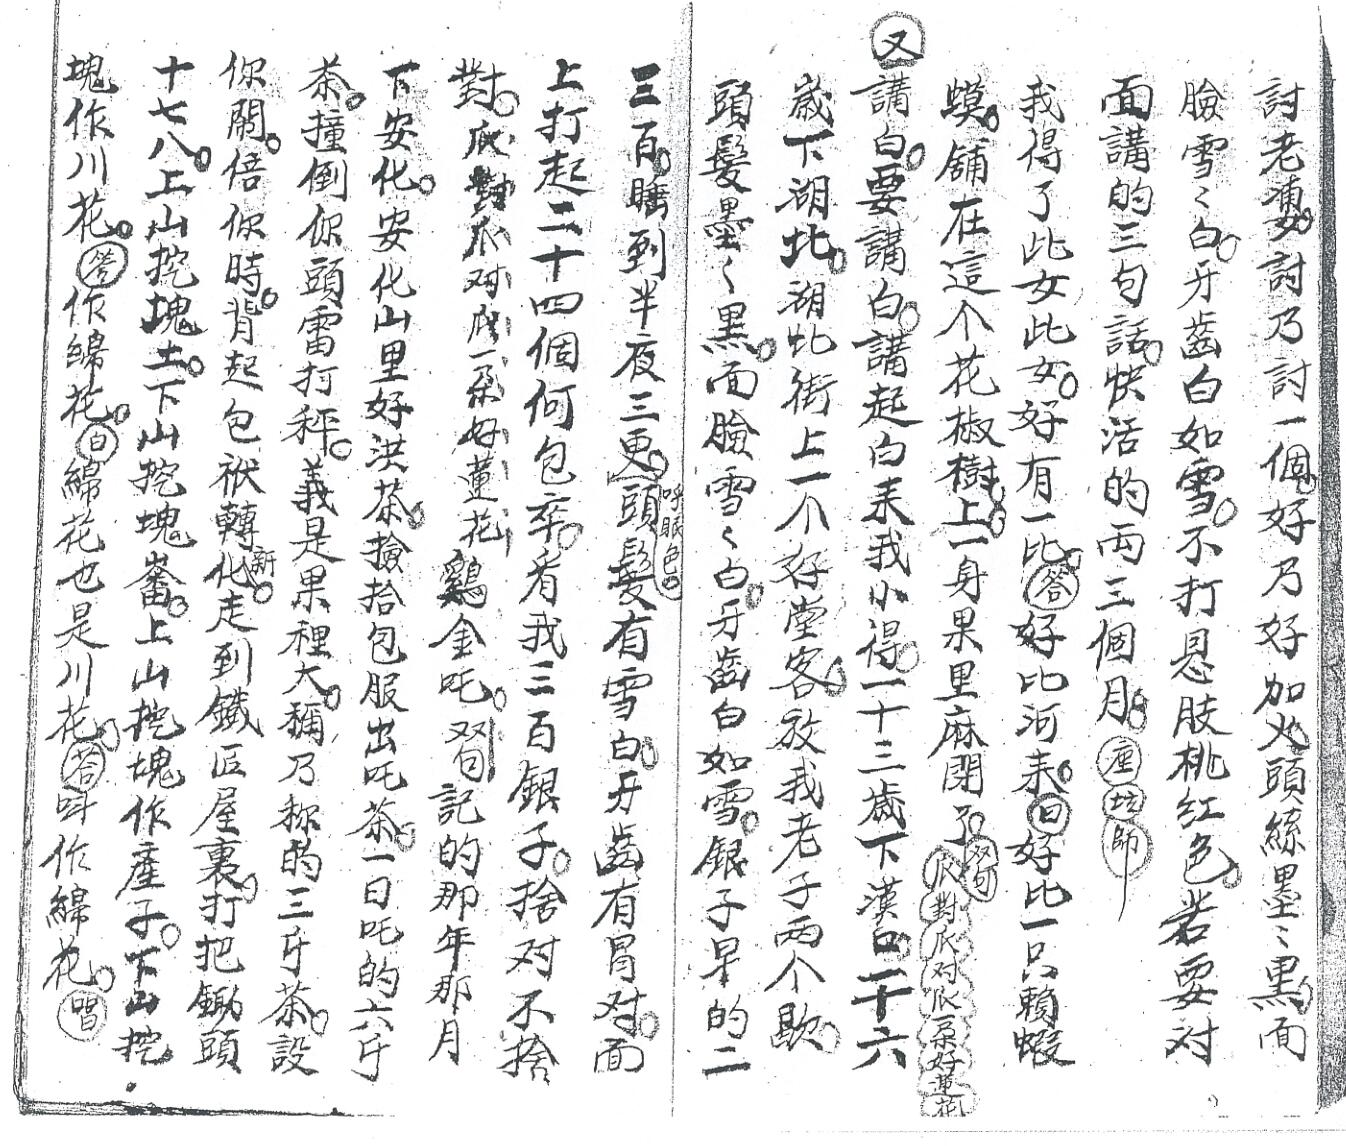 討老婆討乃討一個好乃好加火頭絲墨〻黑面
臉雪〻白牙齒白如雪不打恩肢桃红色若要对
面講的三句話快活的兩三個月座坛師
我得了此女此女好有一比答好比河来白好比一只賴蝦
蟆舖在這个花椒樹上一身果里麻閉了双句爪對爪对爪一朶好蓮花
又講白要講白講起白来我小得一十三歲下漢口一十六
歲下湖北湖北街上一个好堂客放我老子兩个歇
頭髮墨〻黑面臉雪〻白牙齒白如雪銀子早的二
三百睡到半夜三更呼眼色頭髮有雪白牙齒有冒对面
上打起二十四個何包卒看我三百銀子捨对不捨
對爪對爪对爪一朶好蓮花鷄金吒双句記的那年那月
下安化安化山里好洪茶撿拾包服出吒茶一日吒的六斤
茶撞倒你頭雷打秤義是果裡大稱乃称的三斤茶設
你關倍你時背起包袱轉新化走到鐵匠屋裏打把鋤頭
十七八上山挖塊土下山挖塊畬上山挖塊作產子下山挖
塊作川花答作綿花白綿花也是川花答呌作綿花唱